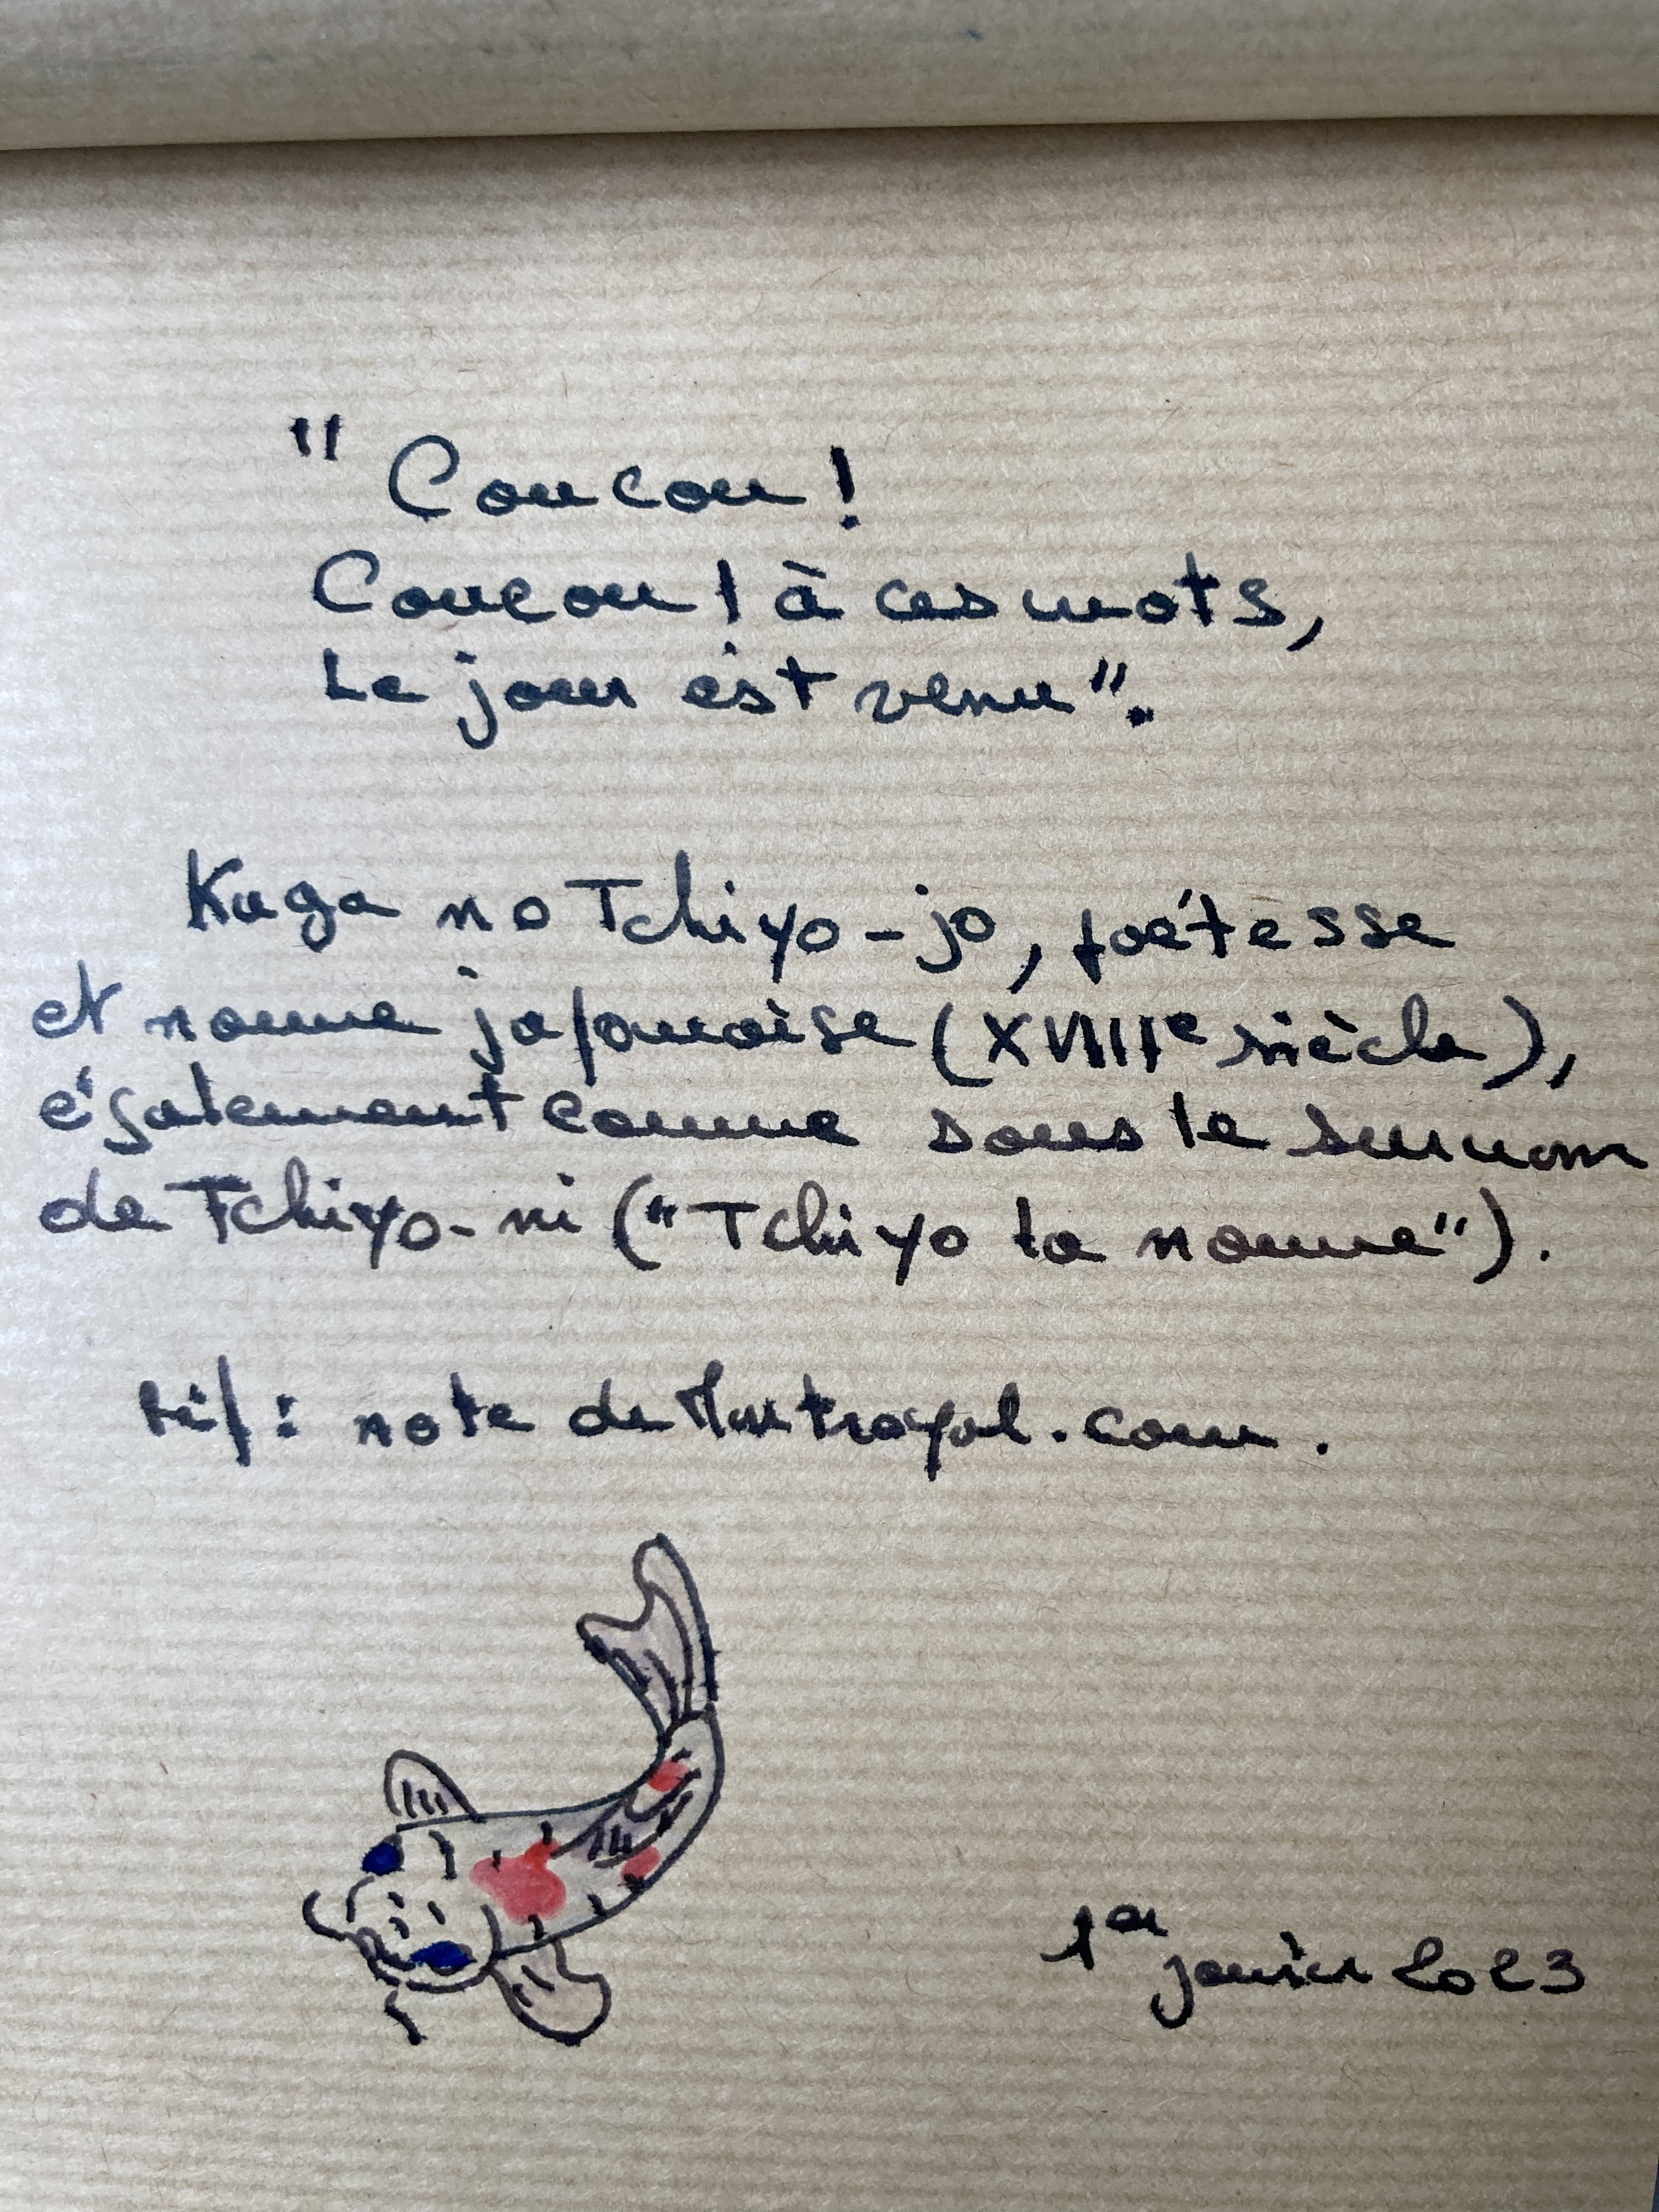 "Coucou !
Coucou ! à ces mots,
Le jour est venu".
Kaga no Tchiyo-jo, poétesse
et nonne japonaise (XVIIIe siècle),
également connue sous le surnom
de Tchiyo-ni ("Tchiyo la nonne").
réf : note de .com.
1er janvier 2023